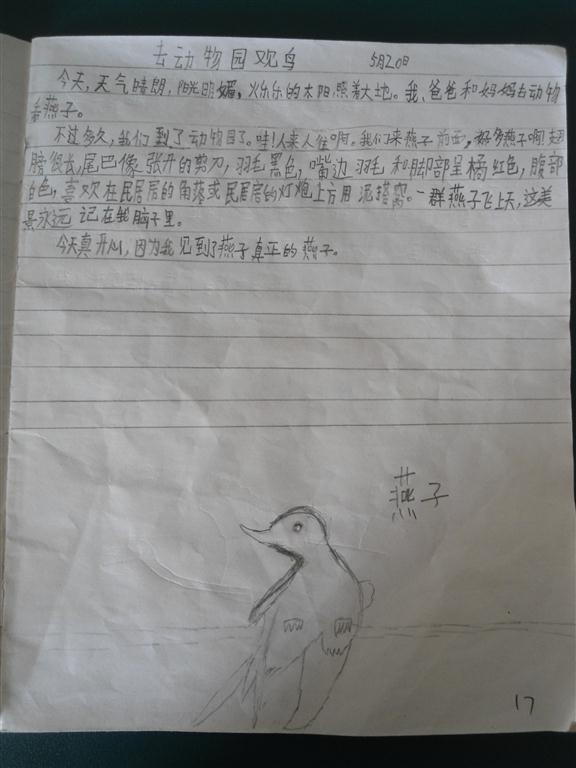 去动物园观鸟 5月20日
今天,天气晴朗,阳光明媚,火乐乐的太阳照着大地。我、爸爸和妈妈去动物
看燕子。
不过多久,我们到了动物园了。哇!人来人往啊。我们来燕子前面,好多燕子啊!翅
膀很长,尾巴像张开的剪刀,羽毛黑色,嘴边羽毛和脚部呈橘红色,腹部
白色,喜欢在民居层的角落或民居层的灯炮上方用泥搭窝。一群燕子飞上天,这美
景永远记在我脑子里。
今天真开心,因为我见到了燕子真正的燕子。
燕子
17